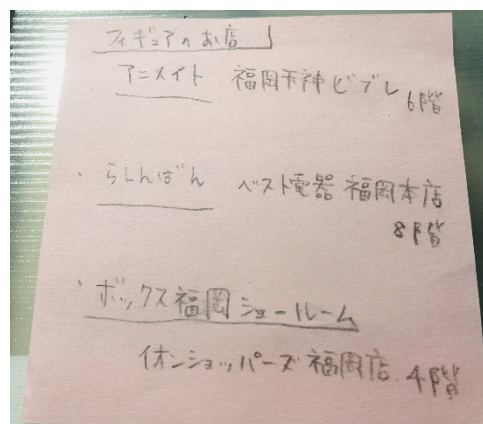 フィギュアのお店
アニメイト 福岡天神ビブレ
6階
・らしんばん ベスト電器 福岡本店
8階
・ボックス福岡ショールーム
イオンショッパーズ福岡店 4階